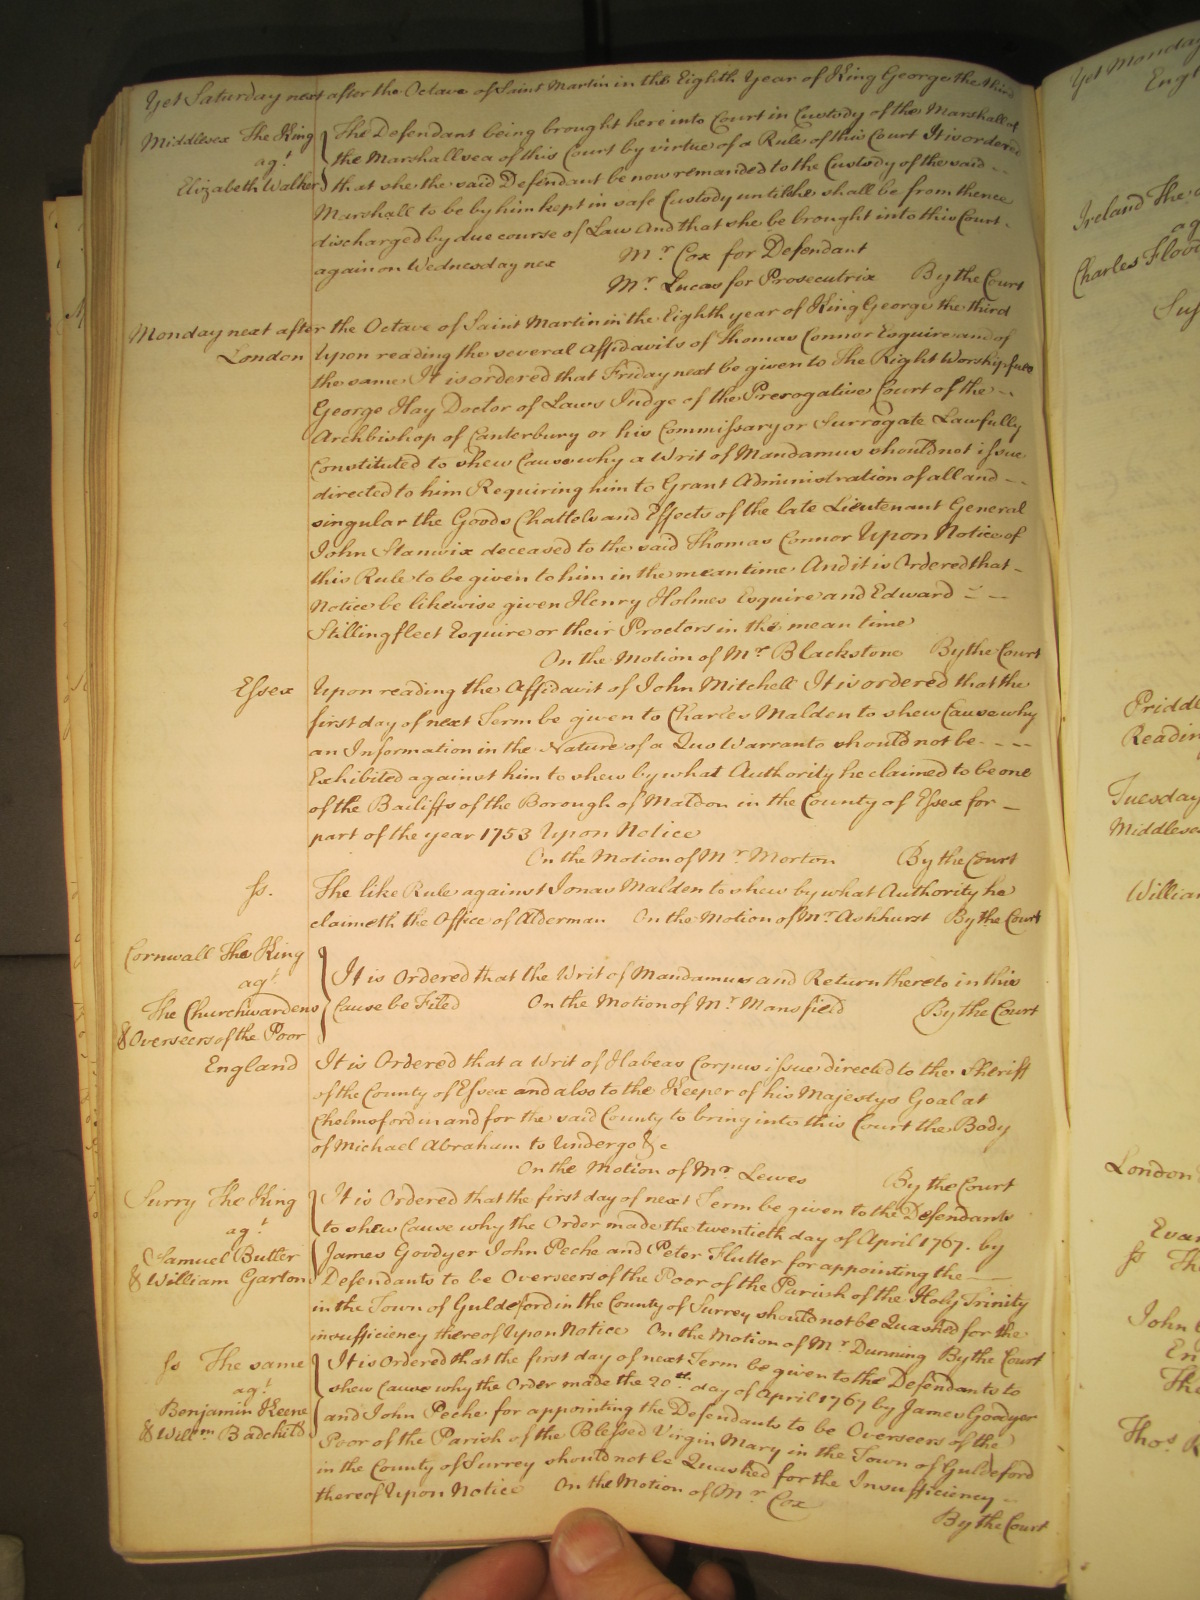 Yet Saturday next after the Octave of Saint Martin in the Eighth Year of King George the third
Middlesex The King
agt
Elizabeth Walker
The Defendant being brought here into Court in Custody of the Marshall of
the Marshallsea of this Court by virtue of a Rule of this Court It is ordered
that she the said Defendant be now remanded to the Custody of the said --
Marshall to be by him kept in safe Custody until she shall be from thence
discharged by due course of Law And that she be brought into this Court -
again on Wednesday nex
Mr Cox for Defendant
Mr Lucas for Prosecutrix By the Court
Monday next after the Octave of Saint Martin in the Eighth year of King George the third
London Upon reading the several Affidavits of Thomas Connor Esquire and of
the same It is ordered that Friday next be given to The Right Worshipfull
George Hay Doctor of Laws Judge of the Prerogative Court of the --
Archbishop of Canterbury or his Commissary or Surrogate Lawfully
Constituted to shew Cause why a Writ of Mandamus should not issue
directed to him Requiring him to Grant Administration of all and --
singular the Goods Chattels and Effects of the late Lieutenant General
John Stanwix deceased to the said Thomas Connor Upon Notice of
this Rule to be given to him in the mean time And it is Ordered that -
Notice be likewise given Henry Holmes Esquire and Edward - - -
Stillingfleet Esquire or their Proctors in the mean time
On the Motion of Mr Blackstone By the Court
Essex Upon reading the Affidavit of John Mitchell It is ordered that the
first day of next Term be given to Charles Malden to shew Cause why
an Information in the Nature of a Quo Warranto should not be - - - -
Exhibited against him to shew by what Authority he claimed to be one
of the Bailiffs of the Borough of Maldon in the County of Essex for -
part of the year 1753 Upon Notice
On the Motion of Mr Morton By the Court
ss. The like Rule against Jonas Malden to shew by what Authority he
claimeth the Office of Alderman On the Motion of Mr Ashhurst By the Court
Cornwall The King
agt
The Churchwardens
& Overseers of the Poor
It is Ordered that the Writ of Mandamus and Return thereto in this
Cause be Filed On the Motion of Mr Mansfield By the Court
England It is Ordered that a Writ of Habeas Corpus issue directed to the Sheriff
of the County of Essex and also to the Keeper of his Majestys Goal at
Chelmsford in and for the said County to bring into this Court the Body
of Michael Abraham to Undergo &c
On the Motion of Mr Lewes By the Court
Surry The King
agt
Samuel Butler
& William Garton
It is Ordered that the first day of next Term be given to the Defendants
to shew Cause why the Order made the twentieth day of April 1767. by
James Goodyer John Peche and Peter Flutter for appointing the --
Defendants to be Overseers of the Poor of the Parish of the Holy Trinity
in the Town of Guldeford in the County of Surrey should not be Quashed for the
insufficiency thereof Upon Notice On the Motion of Mr Dunning By the Court
ss The same
agt
Benjamin Keene
& Willm Badchild
It is Ordered that the first day of next Term be given to the Defendants to
shew Cause why the Order made the 20th day of April 1767 by James Goodyer
and John Peche for appointing the Defendants to be Overseers of the
Poor of the Parish of the Blessed Virgin Mary in the Town of Guldeford
in the County of Surrey should not be Quashed for the Insufficiency -
thereof Upon Notice On the Motion of Mr Cox
By the Court
Yet Monday
Engl
Ireland The
ag
Charles Flood
Suf
Priddle
Readin
Tuesday
Middlese
William
London
Evan
ss Th
John
En
The
Thos R